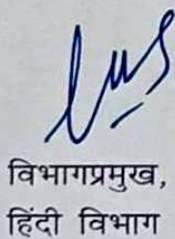 विभागप्रमुख,
हिंदी विभाग